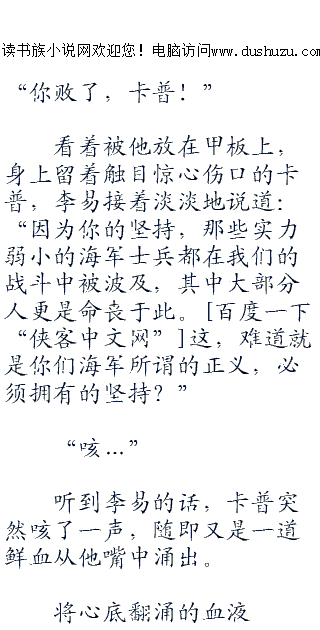 读书族小说网欢迎您！电脑访问www.dushuzu.com
“你败了，卡普！”
看着被他放在甲板上，
身上留着触目惊心伤口的卡
普，李易接着淡淡地说道：
“因为你的坚持，那些实力
弱小的海军士兵都在我们的
战斗中被波及，其中大部分
人更是命丧于此。[百度一下
“侠客中文网”]这，难道就
是你们海军所谓的正义，必
须拥有的坚持？”
“咳…”
听到李易的话，卡普突
然咳了一声，随即又是一道
鲜血从他嘴中涌出。
将心底翻涌的血液